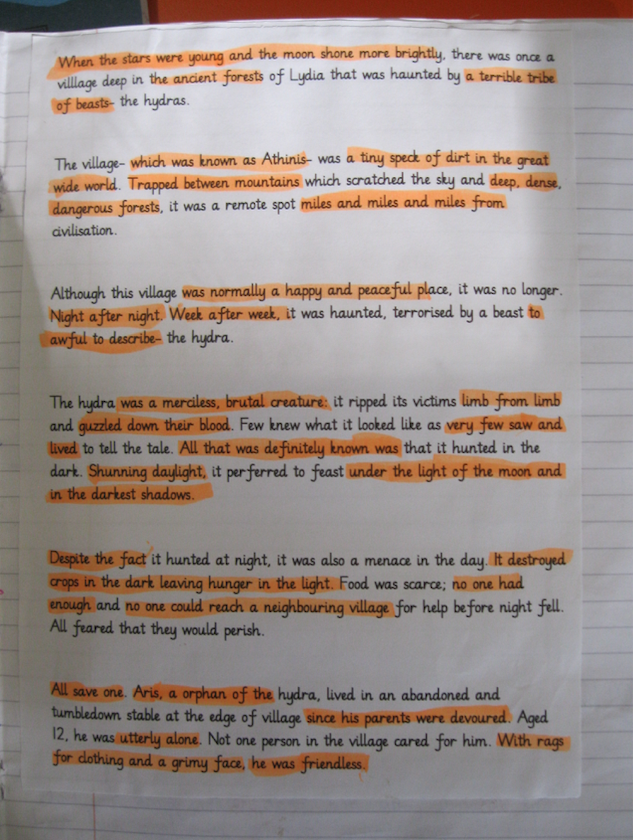 When the stars were young and the moon shone more brightly, there was once a
village deep in the ancient forests of Lydia that was haunted by a terrible tribe
of beasts- the hydras.
The village- which was known as Athinis- was a tiny speck of dirt in the great
wide world. Trapped between mountains which scratched the sky and deep, dense,
dangerous forests, it was a remote spot miles and miles and miles from
civilisation.
Although this village was normally a happy and peaceful place, it was no longer.
Night after night. Week after week, it was haunted, terrorised by a beast to
awful to describe- the hydra.
The hydra was a merciless, brutal creature: it ripped its victims limb from limb
and guzzled down their blood. Few knew what it looked like as very few saw and
lived to tell the tale. All that was definitely known was that it hunted in the
dark. Shunning daylight, it perferred to feast under the light of the moon and
in the darkest shadows.
Despite the fact it hunted at night, it was also a menace in the day. It destroyed
crops in the dark leaving hunger in the light. Food was scarce; no one had
enough and no one could reach a neighbouring village for help before night fell.
All feared that they would perish.
All save one. Aris, a orphan of the hydra, lived in an abandoned and
tumbledown stable at the edge of village since his parents were devoured. Aged
12, he was utterly alone. Not one person in the village cared for him. With rags
for clothing and a grimy face, he was friendless.